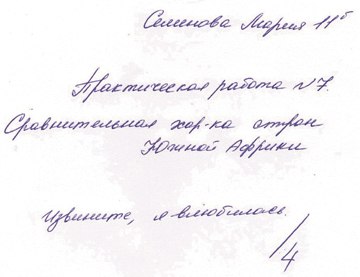 Семенова Мария 11б
Практическая работа №7.
Сравнительная хар-ка стран
Южной Африки
Извините, я влюбилась.
/4